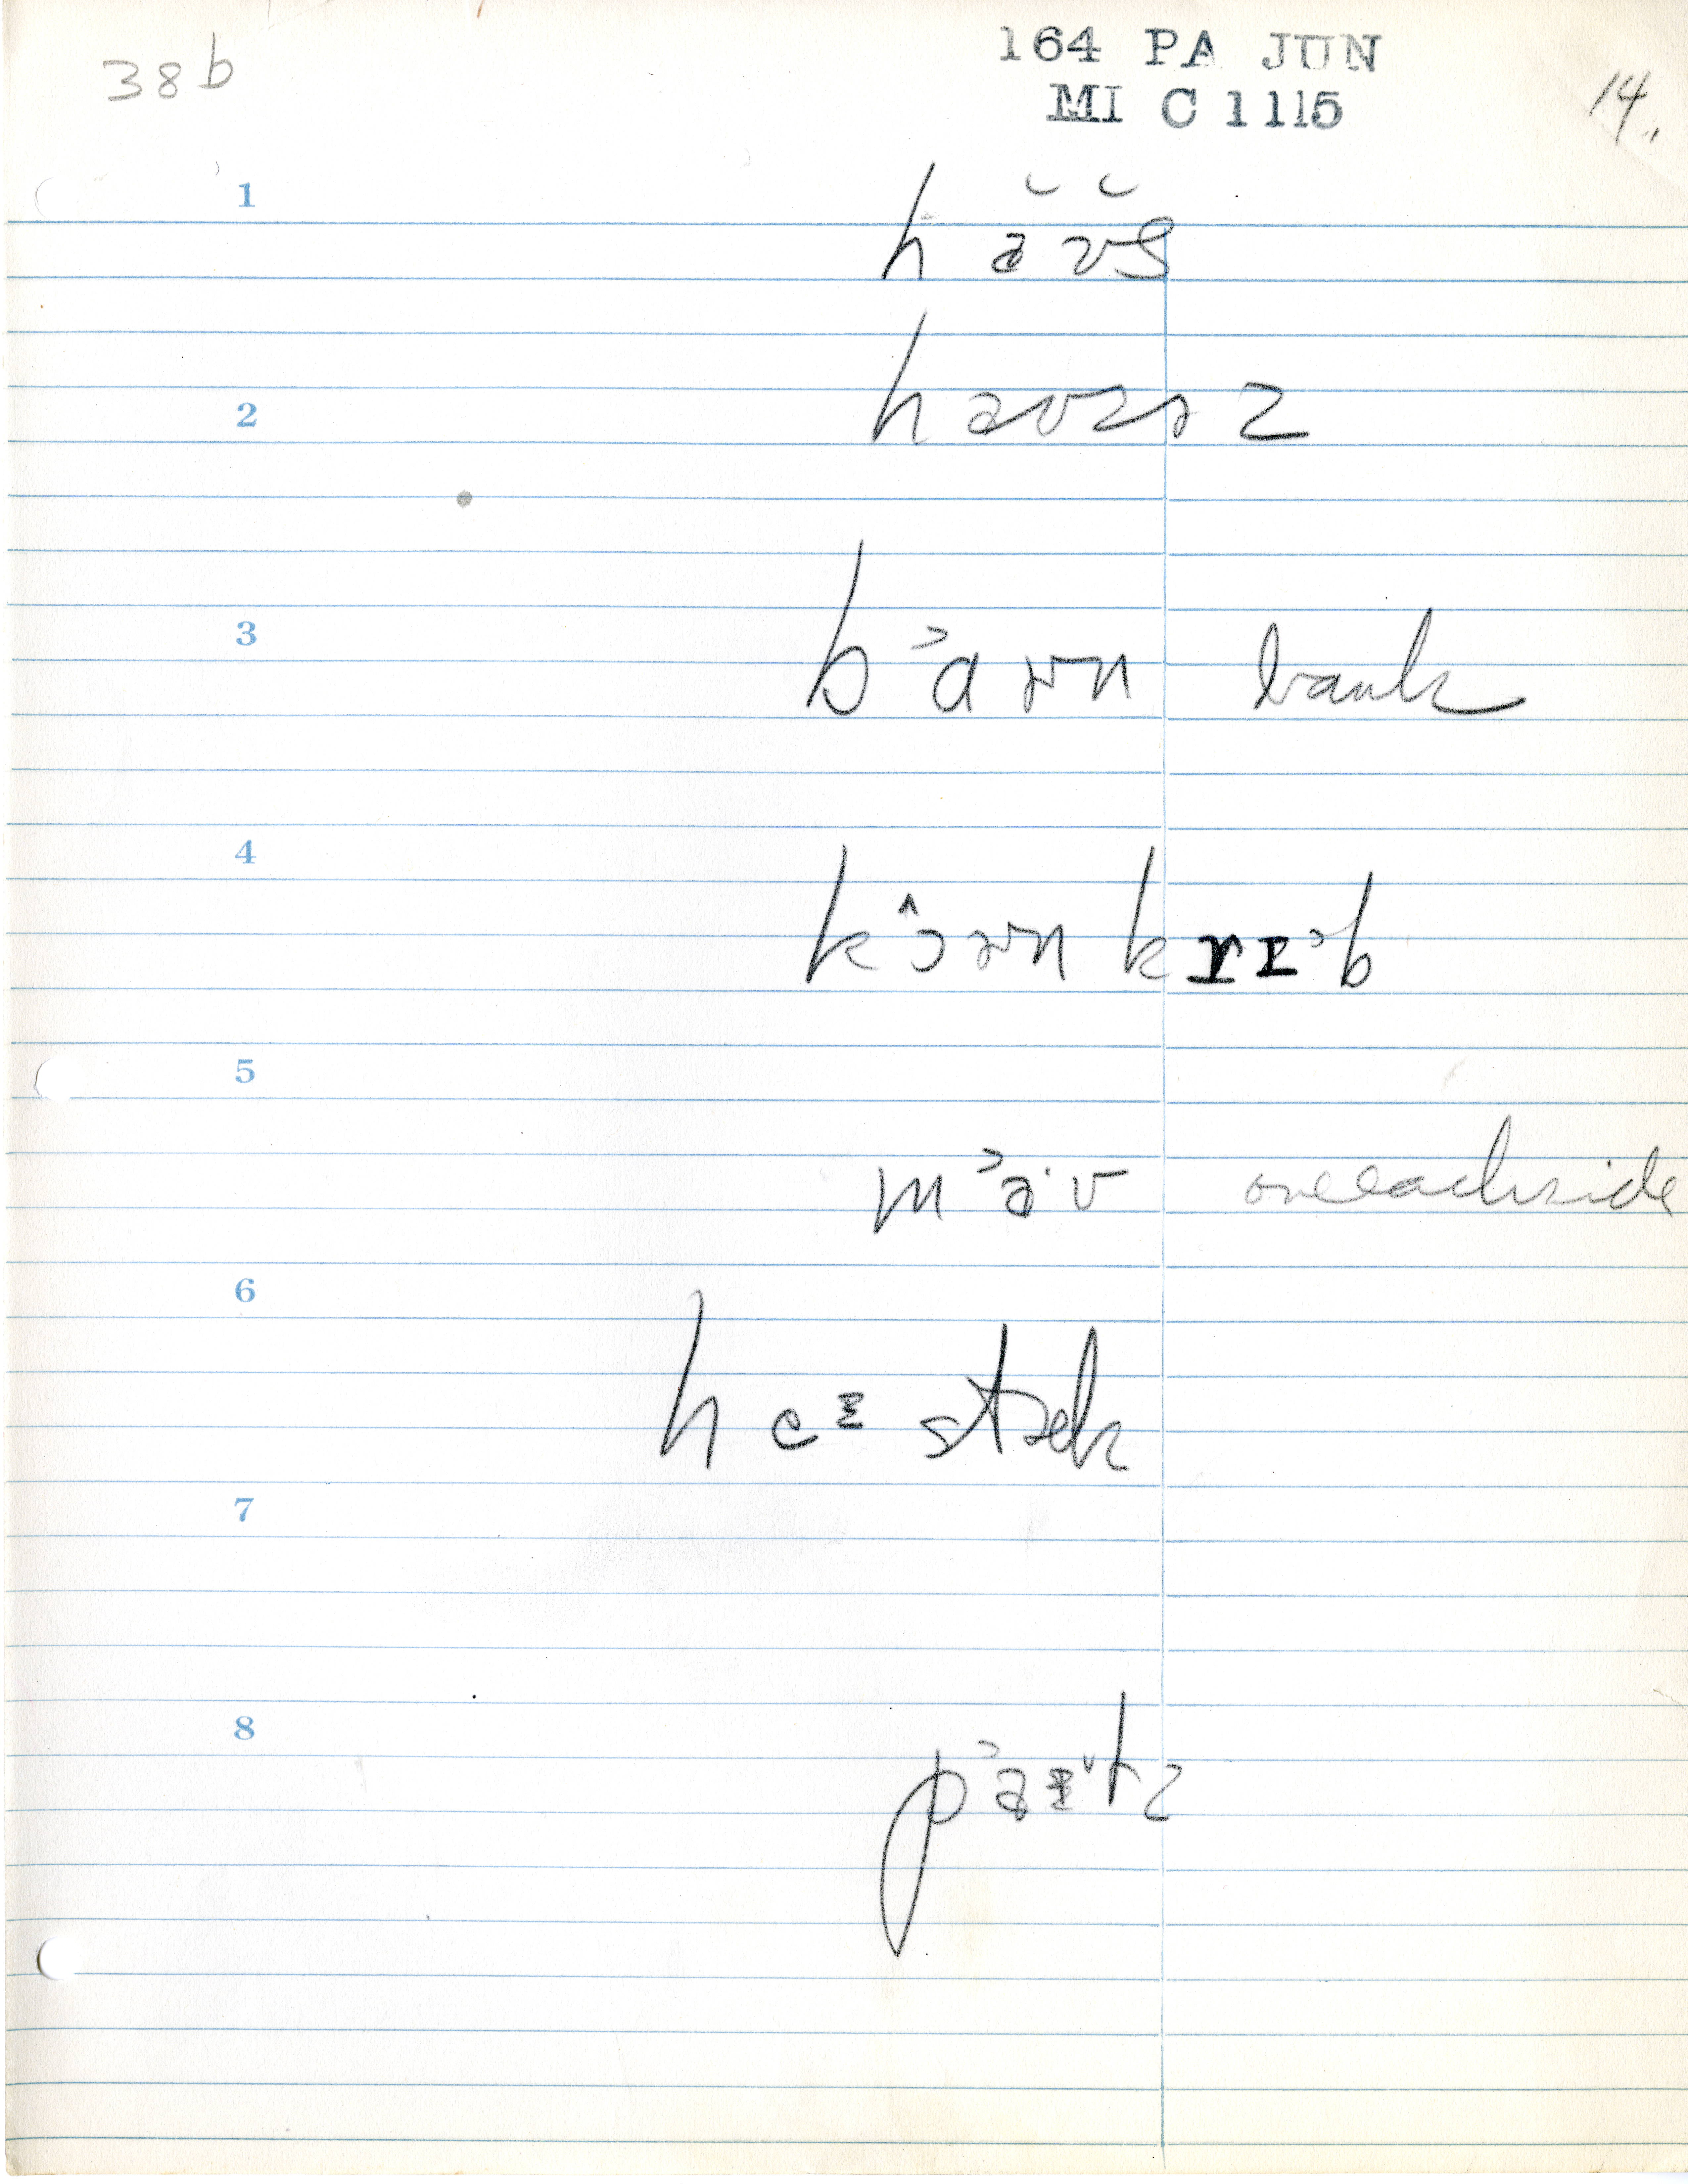 38b
164 PA JUN
MI C 1115
14.
1
hăʊ̆s
2
haʊzɪz
3
b˃ɑrn bank
4
kɔ̂rn krɪ˃b
5
m˃a·ʊ on each side
6
heɪ stæk
7
8